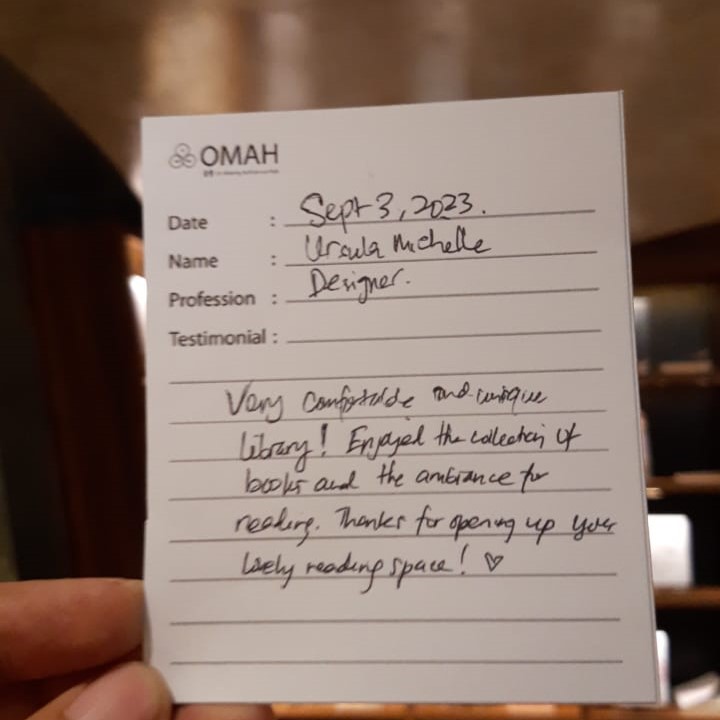 OMAH
Date : Sept 3, 2023.
Name : Ursula Michelle
Profession : Designer.
Testimonial :
Very comfortable and unique
library! Enjoyed the collection of
books and the ambiance for
reading. Thanks for opening up your
lovely reading space! ♡